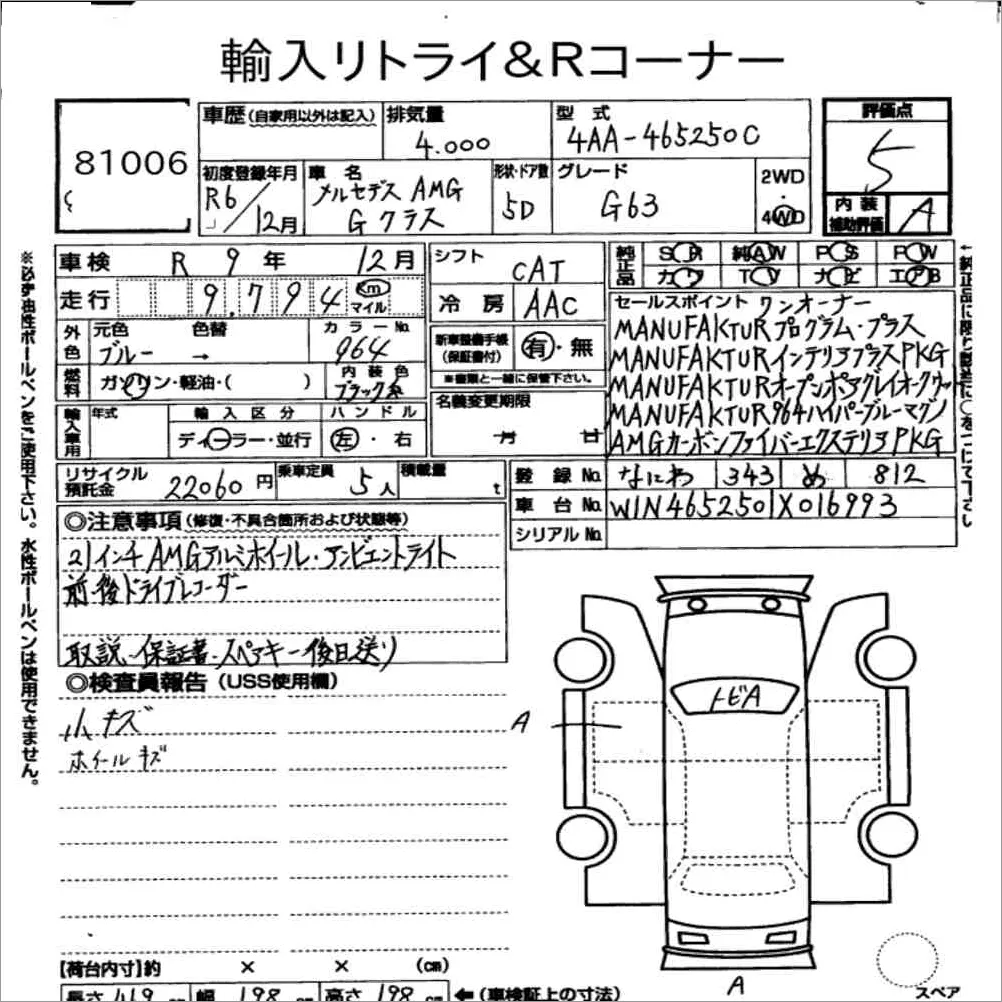 輸入リトライ&Rコーナー
81006
車歴 (自家用以外は記入)
排気量
4.000
型式
4AA-465250C
評価点
5
初度登録年月
R6/12月
車名
メルセデス AMG
G クラス
形状・ドア数
5D
グレード
G63
2WD
・
4WD
内装
補助評価
A
車検 R 9年 12月
走行 9,794 Km
マイル
外色
元色 色替 カラーNo.
ブルー → 964
燃料
ガソリン・軽油・( )
内装色
ブラック系
輸入車用
年式
輸入区分
ディーラー・並行
ハンドル
左・右
シフト CAT
冷房 AAC
新車整備手帳
(保証書付)
有・無
※書類と一緒に保管下さい。
名義変更期限
月 日
純正品
SR 純AW PS PW
カワ TV ナビ エアB
セールスポイント ワンオーナー
MANUFAKTURプログラム・プラス
MANUFAKTURインテリアプラスPKG
MANUFAKTURオープンポアグレイオークウッド
MANUFAKTUR964ハイパーブルーマグノ
AMGカーボンファイバーエクステリアPKG
リサイクル
預託金
22060円
乗車定員
5人
積載量
t
登録No. なにわ 343 め 812
車台No. W1N4652501X016993
シリアルNo.
◎注意事項 (修復・不具合箇所および状態等)
21インチAMGアルミホイール・アンビエントライト
前後ドライブレコーダー
取説・保証書・スペアキー後日送り
◎検査員報告 (USS使用欄)
小キズ
ホイールキズ
トビA
A
A
スペア
【荷台内寸】約 × × (cm)
長さ 469 cm 幅 198 cm 高さ 198 cm ←(車検証上の寸法)
※必ず油性ボールペンをご使用下さい。水性ボールペンは使用できません。